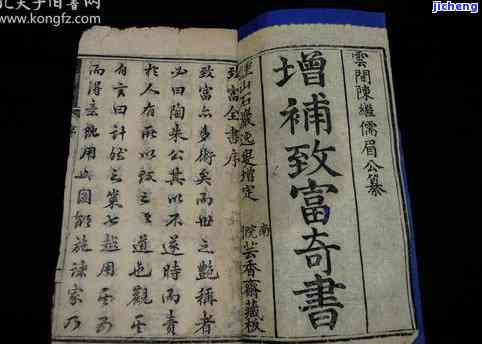 孔夫子旧书网
w.kongfz.com
jicheng
雲間陳繼儒眉公纂
增補致富奇書
南院芸香齋藏板
山石巖逸叟增定
致富全書序
致富亦多術矣而世之艷稱者
必曰陶朱公其以不逐時而責
於人有所以致之之道也觀其
有言曰計然之策七越用其五
而得意既用於國欲施諸家乃